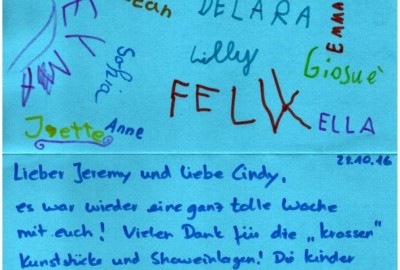 DELARA
EMMA
Lilly
Sofia
Giosuè
FELIX
Joette
Anne
ELLA
29.10.16
Lieber Jeremy und liebe Cindy,
es war wieder eine ganz tolle Woche
mit euch! Vielen Dank für die „krassen"
Kunststücke und Showeinlagen! Die Kinder